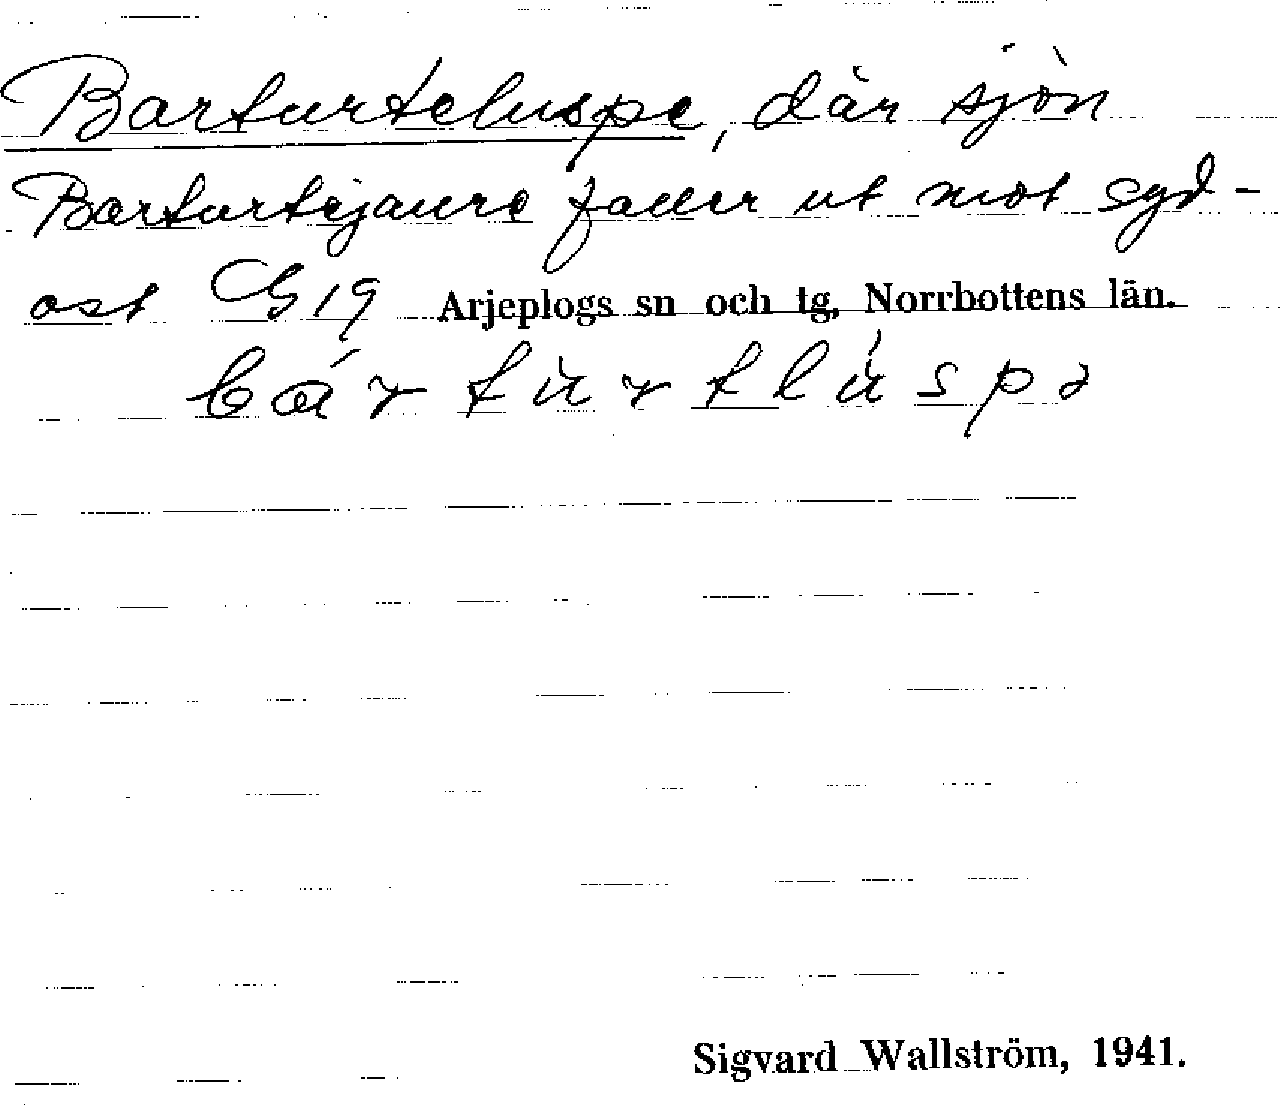 Barturteluspe, där sjön
Barturtejaure faller ut mot syd-
ost G19 Arjeplogs sn och tg, Norrbottens län.
bártùrtlúspə
Sigvard Wallström, 1941.